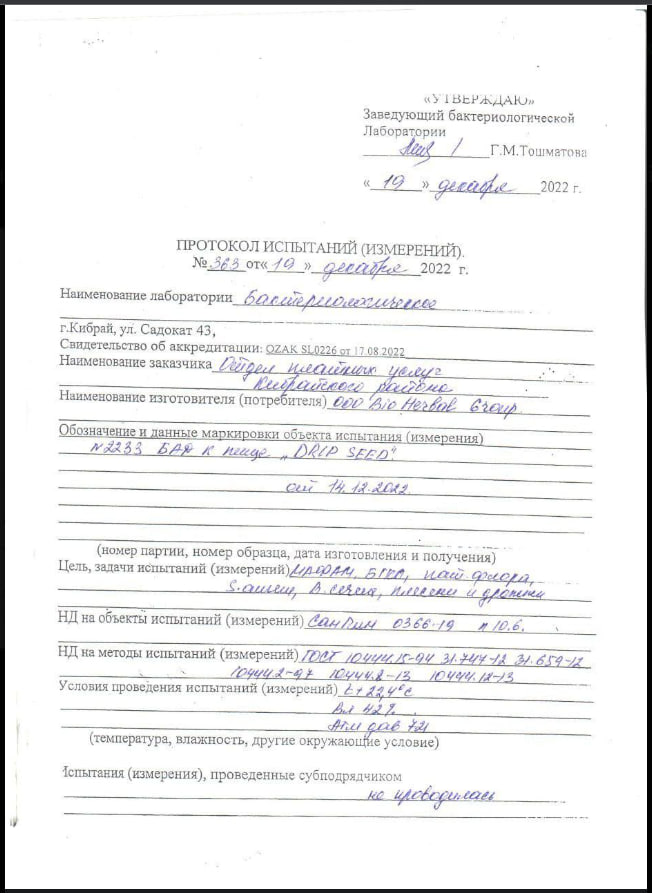 «УТВЕРЖДАЮ»
Заведующий бактериологической
Лаборатории
Г.М.Тошматова
« 19 » декабря 2022 г.
ПРОТОКОЛ ИСПЫТАНИЙ (ИЗМЕРЕНИЙ).
№ 363 от« 19 » декабря 2022 г.
Наименование лаборатории Бактериологическое
г.Кибрай, ул. Садокат 43,
Свидетельство об аккредитации: OZAK SL0226 от 17.08.2022
Наименование заказчика Отдел платных услуг
Кибрайского района
Наименование изготовителя (потребителя) ООО Bio Herbal Group
Обозначение и данные маркировки объекта испытания (измерения)
№2233 БАД к пище „DRIP SEED“.
от 14.12.2022
(номер партии, номер образца, дата изготовления и получения)
Цель, задачи испытаний (измерений) МАФАМ, БГКП, пат.флора,
S.aureus, B.cereus, плесени и дрожжи
НД на объекты испытаний (измерений) СанПин 0366-19 п 10.6.
НД на методы испытаний (измерений) ГОСТ 10444.15-94 31.747-12 31.659-12
10444.2-97 10444.8-13 10444.12-13
Условия проведения испытаний (измерений) t+22,4°С
Вл 42%
Атм дав 721
(температура, влажность, другие окружающие условие)
Испытания (измерения), проведенные субподрядчиком
не проводилась